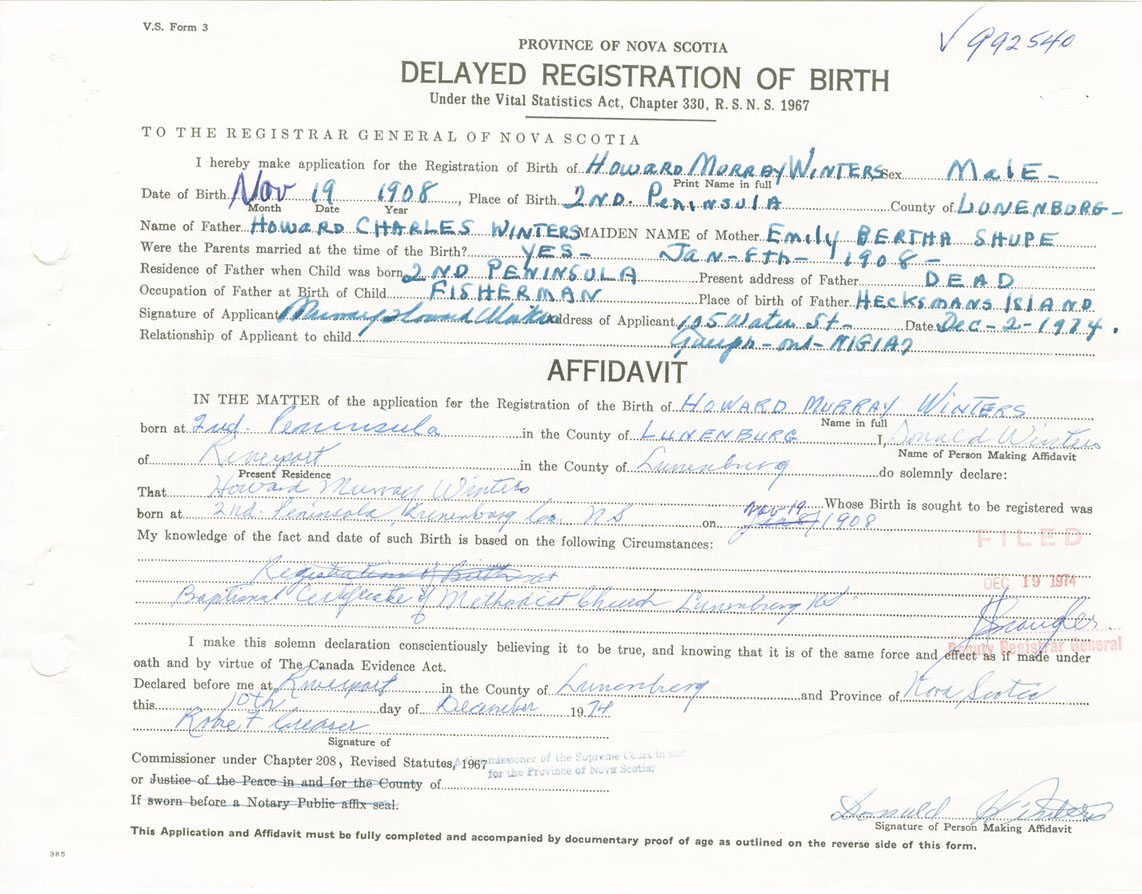 V.S. Form 3
√ 992540
PROVINCE OF NOVA SCOTIA
DELAYED REGISTRATION OF BIRTH
Under the Vital Statistics Act, Chapter 330, R. S. N. S. 1967
TO THE REGISTRAR GENERAL OF NOVA SCOTIA
I hereby make application for the Registration of Birth of HOWARD MURRAY WINTERS Sex MalE -
Print Name in full
Date of Birth Nov 19 1908, Place of Birth 2ND. PENINSULA County of LUNENBURG -
Month Date Year
Name of Father HOWARD CHARLES WINTERS MAIDEN NAME of Mother Emily BERTHA SHUPE
Were the Parents married at the time of the Birth? YES - JAN - 8th - 1908 -
Residence of Father when Child was born 2ND PENINSULA Present address of Father DEAD
Occupation of Father at Birth of Child FISHERMAN Place of birth of Father HECKSMANS ISLAND
Signature of Applicant Murray Howard Address of Applicant 105 Water St - Date Dec - 2 - 1974.
Relationship of Applicant to child - ont - N1G1A7
AFFIDAVIT
IN THE MATTER of the application for the Registration of the Birth of HOWARD MURRAY WINTERS
Name in full
born at 2nd. Peninsula in the County of LUNENBURG I, Donald Winters
Name of Person Making Affidavit
of Riverport in the County of Lunenburg do solemnly declare:
Present Residence
That Howard Murray Winters Whose Birth is sought to be registered was
born at 2nd. Peninsula, Lunenburg Co. NS on Nov-19 1908
My knowledge of the fact and date of such Birth is based on the following Circumstances:
FILED
Registration of Birth
DEC 19 1974
Baptismal Certificate of Methodist Church Lunenburg NS.
I make this solemn declaration conscientiously believing it to be true, and knowing that it is of the same force and effect as if made under
Deputy Registrar General
oath and by virtue of The Canada Evidence Act.
Declared before me at Riverport in the County of Lunenburg and Province of Nova Scotia
this 10th day of December 1974
Robert Creaser
Signature of
Commissioner under Chapter 208, Revised Statutes, 1967
A Commissioner of the Supreme Court in and
for the Province of Nova Scotia.
or Justice of the Peace in and for the County of
If sworn before a Notary Public affix seal.
Donald Winters
Signature of Person Making Affidavit
This Application and Affidavit must be fully completed and accompanied by documentary proof of age as outlined on the reverse side of this form.
385